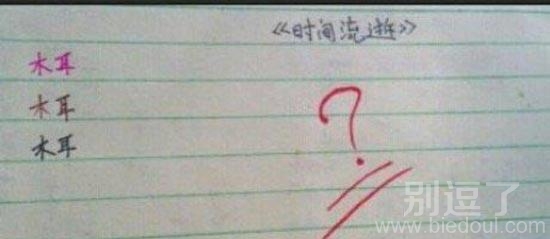 《时间流逝》
木耳
木耳
木耳
?
别逗了
www.biedoul.com